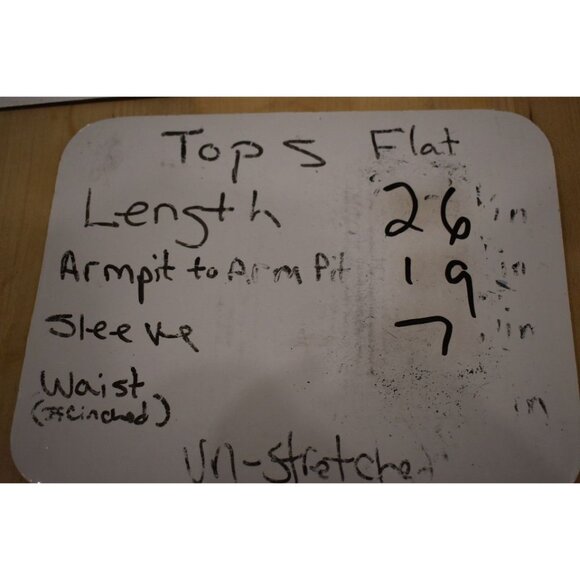 Tops Flat
Length 26 in
Armpit to Arm Pit 19 in
Sleeve 7 in
Waist in
(if cinched)
Un-stretched